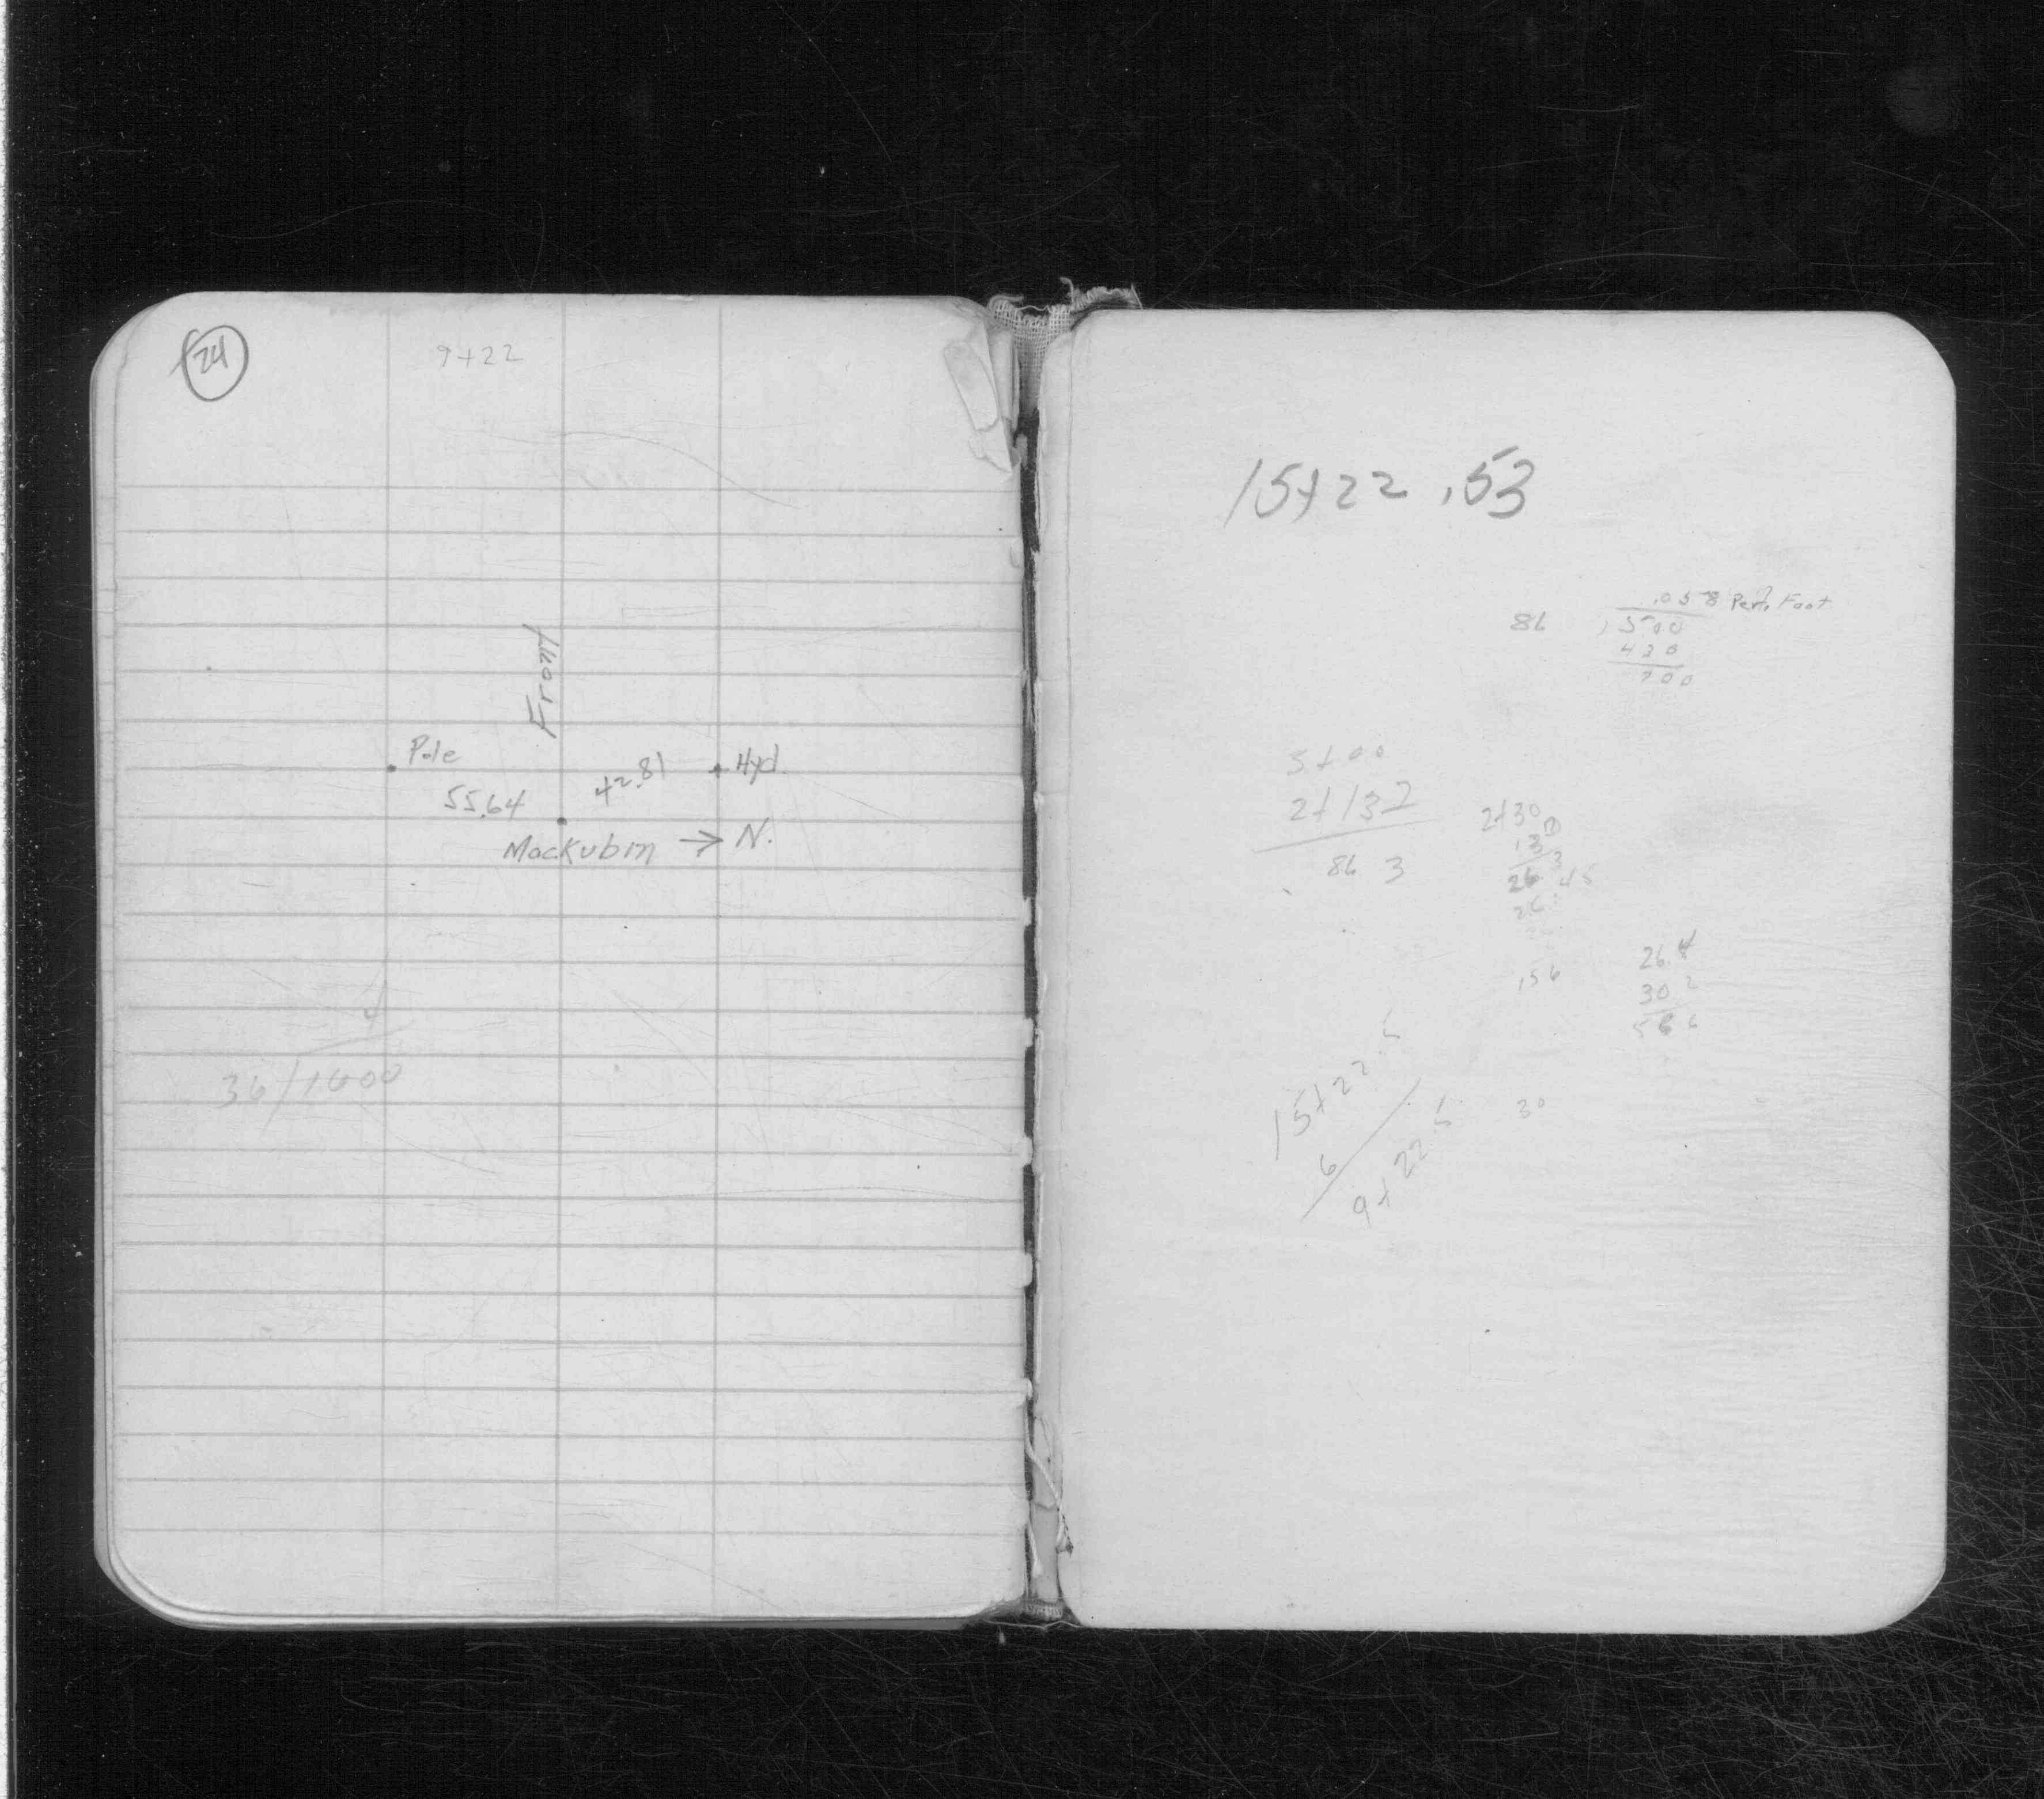 24
9+22
Front
Pole
42.81
Hyd.
55.64
Mackubin → N.
36/1000
15+22.53
.058 Per. Foot
86 )500
430
700
3+00
2+132
86 3
2+30
26
26
.45
.56
26.4
30 2
56 6
15+22.5
6
9+22.5
30